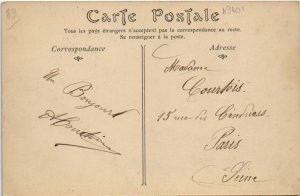 89
19401
Carte Postale
Tous les pays étrangers n'acceptent pas la correspondance au recto.
Se renseigner à la poste.
Correspondance
Adresse
Un Bonjour
Madame
Courtois
15 rue des Cendriers
Paris
Seine